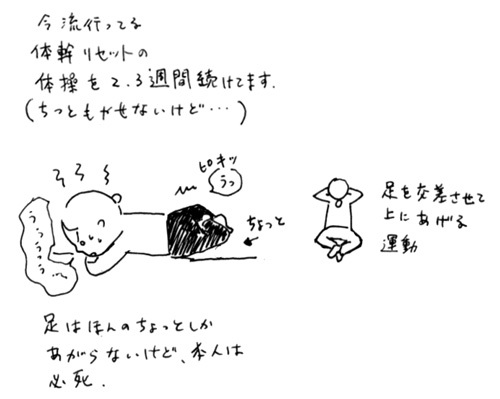 今流行ってる
体幹リセットの
体操を2.3週間続けてます.
(ちっともやせないけど・・・)
ピキッ
うっ
うううう
ちょっと
足を交差させて
上にあげる
運動
足はほんのちょっとしか
あがらないけど、本人は
必死.